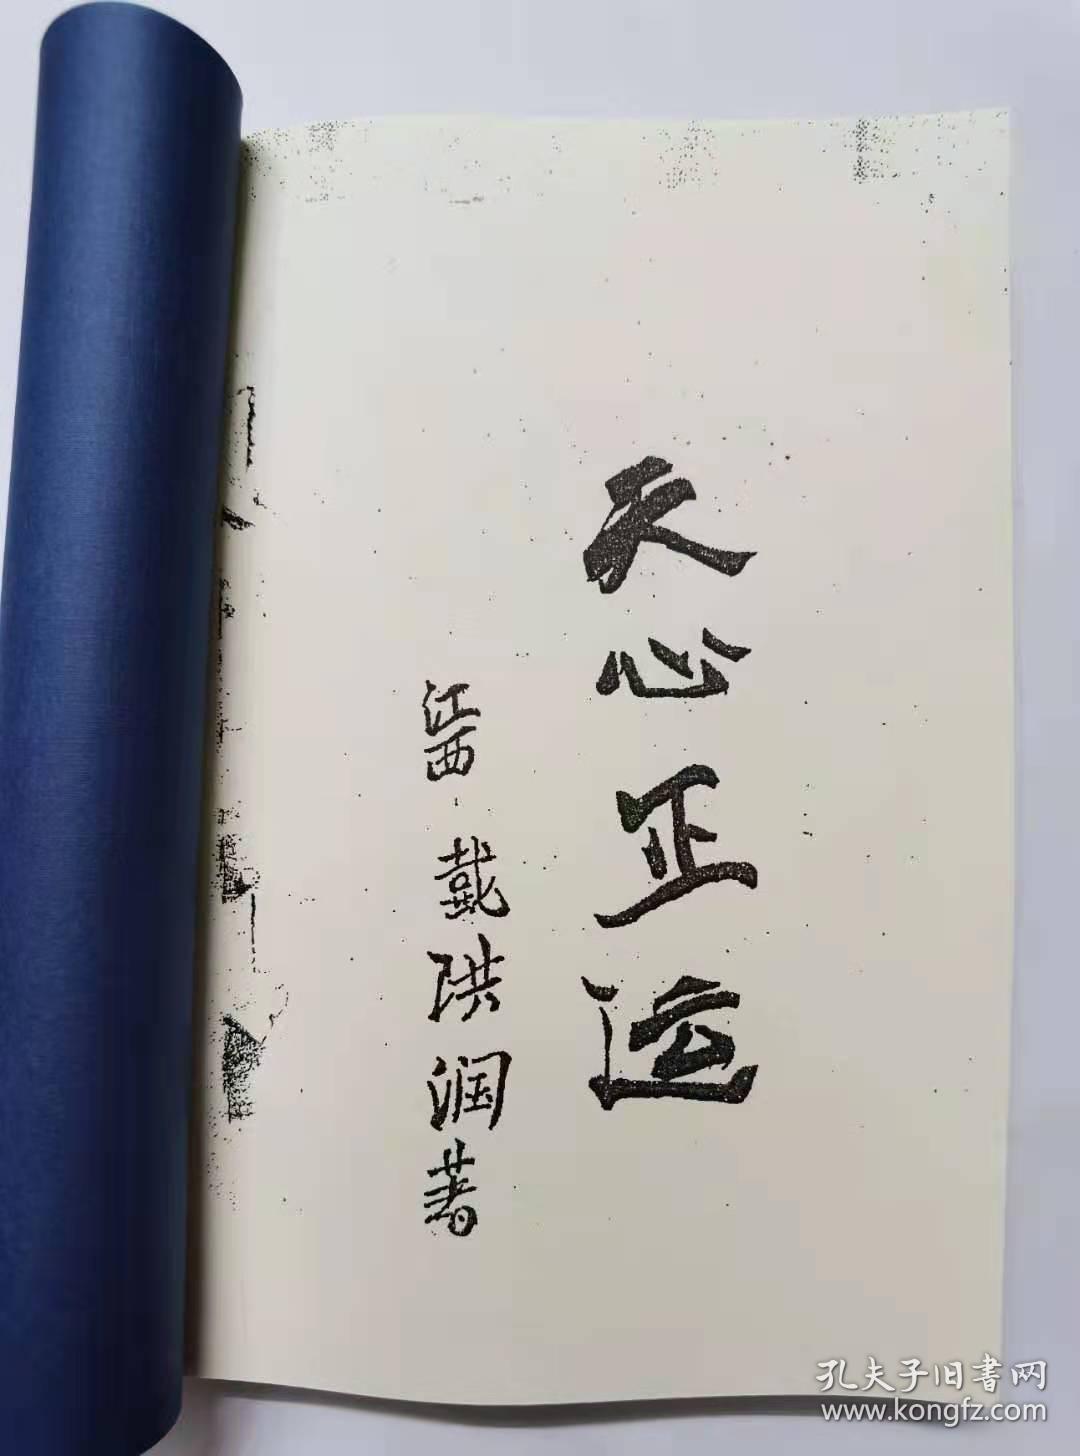 天心正运
江西 戴洪润著
孔夫子旧書网
www.kongfz.com